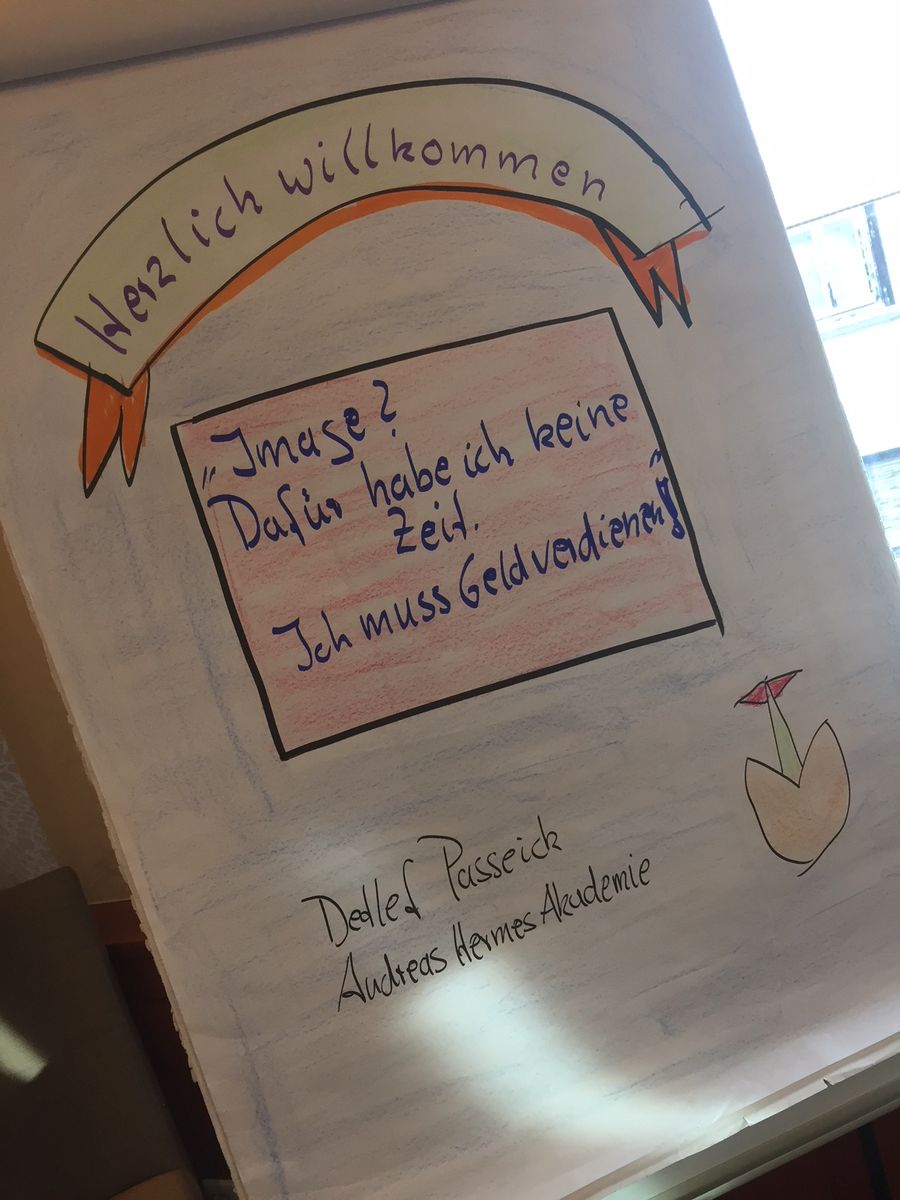 Herzlich willkommen
„Image?
Dafür habe ich keine
Zeit.
Ich muss Geld verdienen!"
Detlef Passeick
Andreas Hermes Akademie